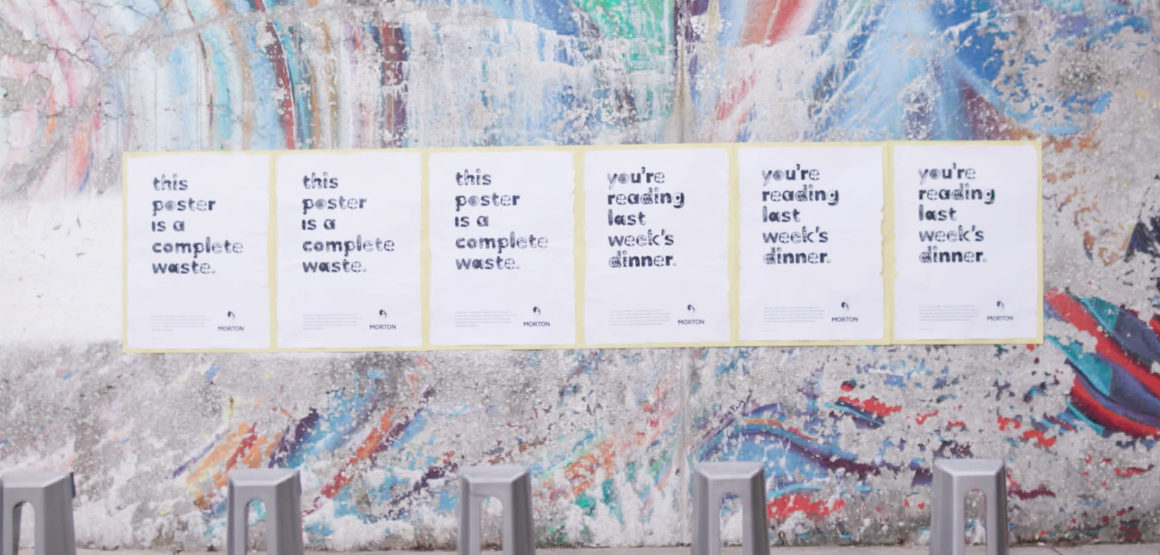 this
poster
is a
complete
waste.
MORTON
this
poster
is a
complete
waste.
MORTON
this
poster
is a
complete
waste.
MORTON
you're
reading
last
week's
dinner.
MORTON
you're
reading
last
week's
dinner.
MORTON
you're
reading
last
week's
dinner.
MORTON